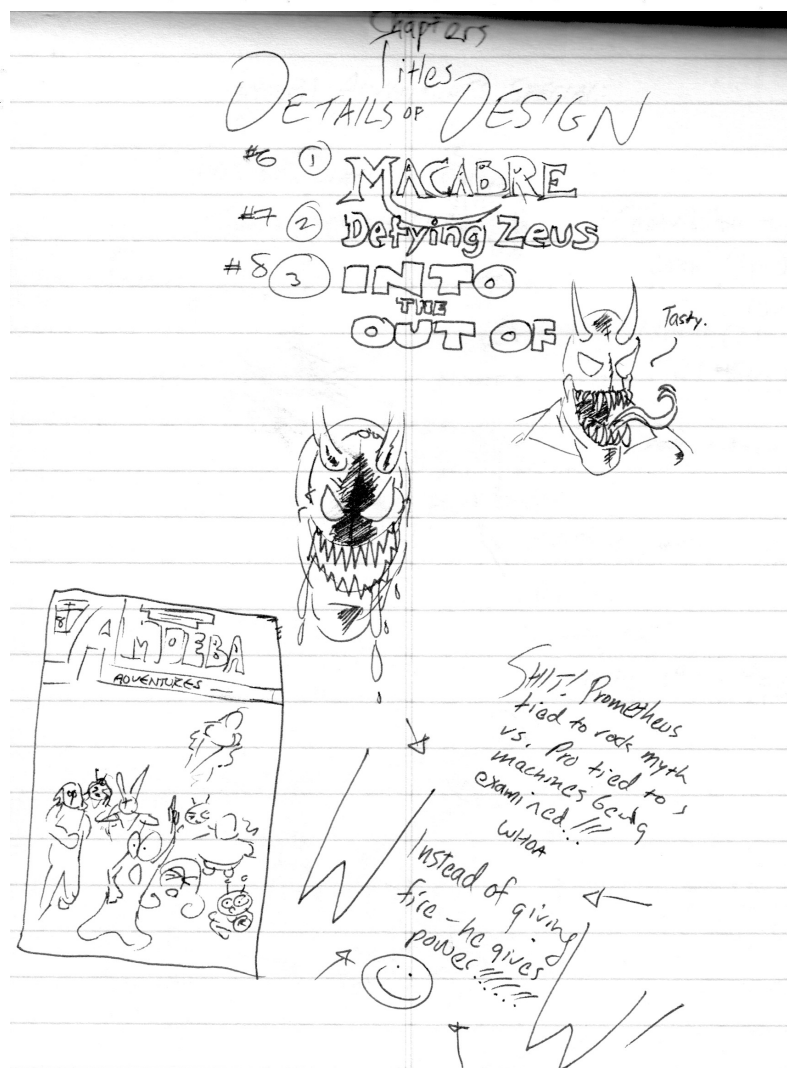 Chapters
Titles
DETAILS OF DESIGN
#6 1 MACABRE
#7 2 Defying Zeus
#8 3 INTO
THE
OUT OF
Tasty.
AMOEBA
ADVENTURES
SHIT! Prometheus
tied to rock myth
vs. Pro tied to
machines being
examined!!!
WHOA
Instead of giving
fire - he gives
power!!!!!!
W
W!